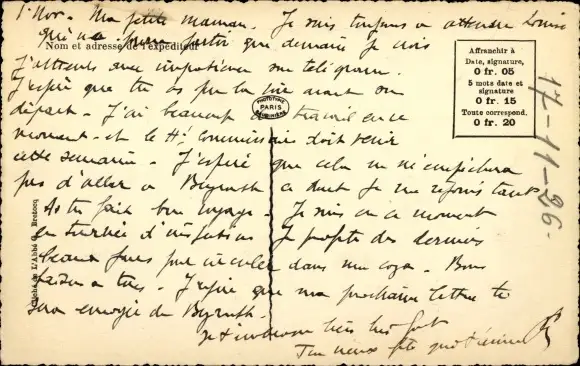 1 Nov. Ma petite maman. Je suis toujours a attendre Louise
qui n'a pu partir que demain je crois
Nom et adresse de l'expéditeur
J'attends avec impatience son télégramme.
J'espère que tu as pu la voir avant son
départ. J'ai beaucoup de travail en ce
moment et le Ht Commissaire doit venir
cette semaine. J'espère que cela ne m'empêchera
pas d'aller a Beyrouth ce dont je me réjouis tant
As tu fait bon voyage. Je suis en ce moment
en tournée d'inspection Je profite des derniers
beaux jours pour circuler dans ma coza. Bons
baisers a tous. J'espère que ma prochaine lettre te
sera envoyée de Beyrouth.
Je t'embrasse très très fort
Ton vieux
Affranchir à
Date, signature,
0 fr. 05
5 mots date et
signature
0 fr. 15
Toute correspond.
0 fr. 20
17-11-26.
PHOTOTYPIE
PARIS
Cliché de L'Abbé G. Bretocq